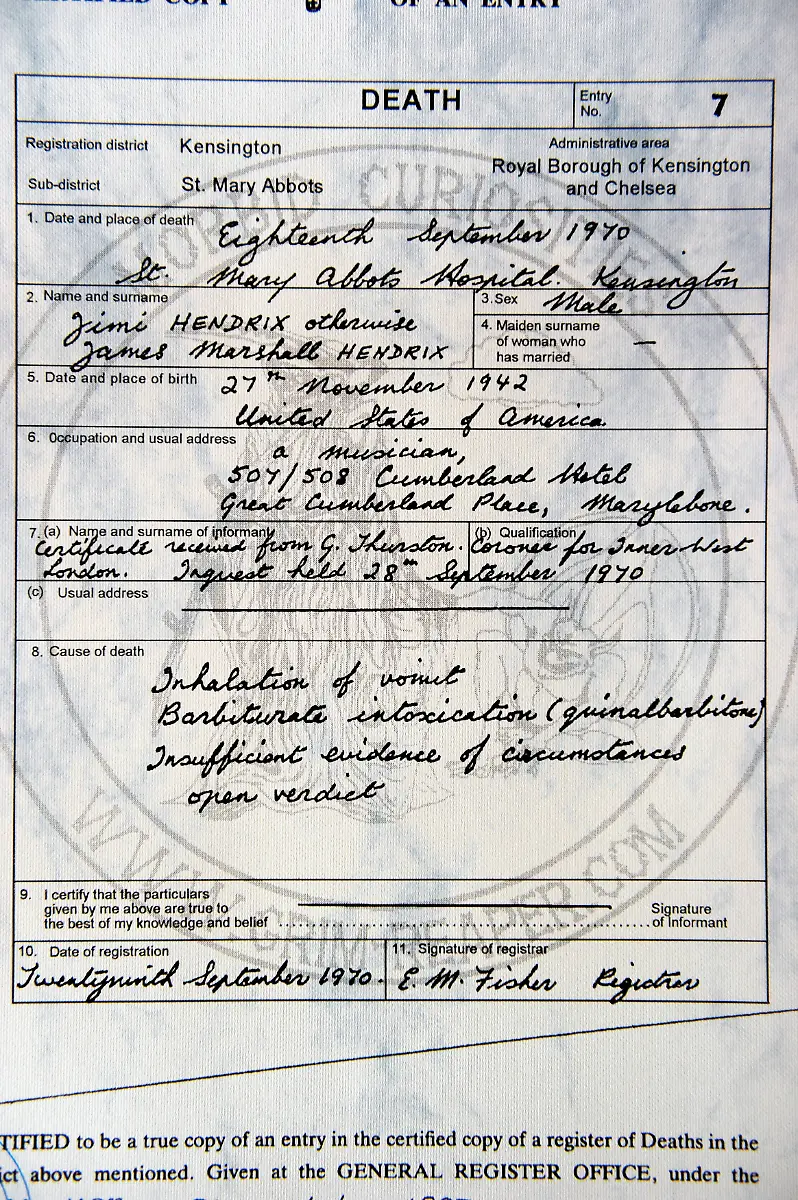 OF AN ENTRY
DEATH
Entry No. 7
Registration district Kensington
Administrative area
Royal Borough of Kensington and Chelsea
Sub-district St. Mary Abbots
1. Date and place of death Eighteenth September 1970
St. Mary Abbots Hospital. Kensington
2. Name and surname
Jimi HENDRIX otherwise
James Marshall HENDRIX
3. Sex Male
4. Maiden surname
of woman who
has married —
5. Date and place of birth 27th November 1942
United States of America
6. Occupation and usual address
a musician,
507/508 Cumberland Hotel
Great Cumberland Place, Marylebone.
7. (a) Name and surname of informant (b) Qualification
Certificate received from G. Thurston. Coroner for Inner West
London. Inquest held 28th September 1970
(c) Usual address
8. Cause of death
Inhalation of vomit
Barbiturate intoxication (quinalbarbitone)
Insufficient evidence of circumstances
open verdict
9. I certify that the particulars
given by me above are true to
the best of my knowledge and belief
Signature
of informant
10. Date of registration
Twentyninth September 1970.
11. Signature of registrar
E. M. Fisher Registrar
TIFIED to be a true copy of an entry in the certified copy of a register of Deaths in the
ict above mentioned. Given at the GENERAL REGISTER OFFICE, under the
MORBID CURIOSITIES
WWW.GRIM-REAPER.COM